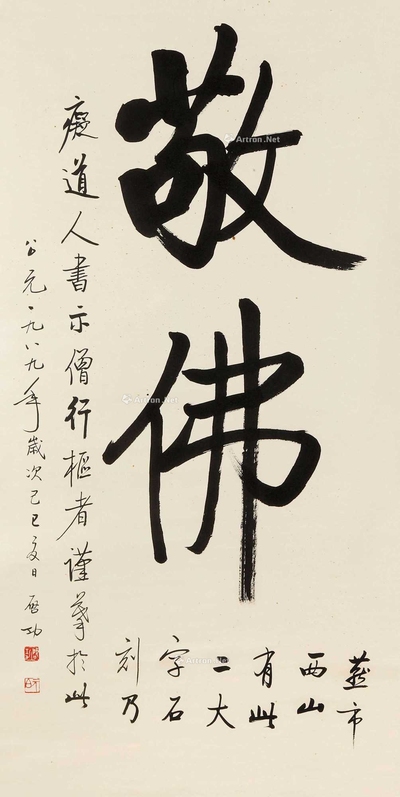 敬佛
燕市
西山
有此
二大
字石
刻乃
癡道人書示僧行樞者謹摹於此
公元一九八九年歲次己巳夏日 啓功
Artron.Net
Artron.Net
Artron.Net
Artron.Net